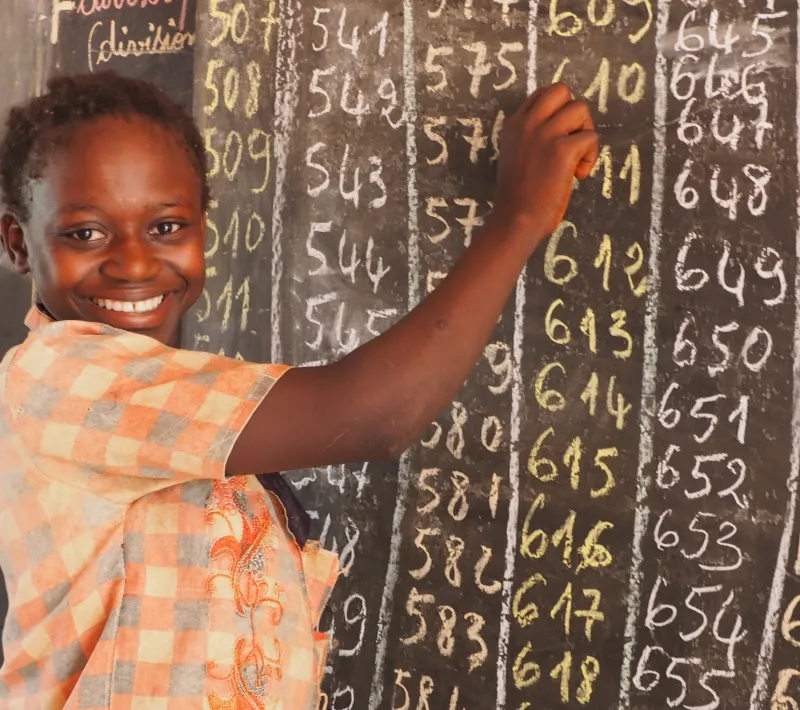 (division
507
508
509
510
511
541
542
543
544
545
575
57
57
9
580
581
582
583
609
10
11
612
613
614
615
616
617
618
645
646
647
648
649
650
651
652
653
654
655